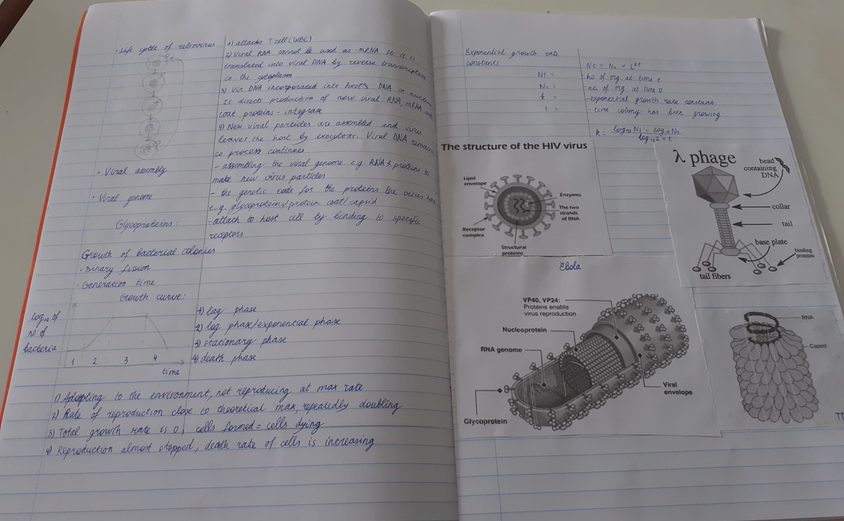 · Life cycle of retrovirus
1) attacks T cell (WBC)
2) Viral RNA cannot be used as mRNA so it is
translated into viral DNA by reverse transcriptase
in the cytoplasm
3) Vir DNA incorporated into host's DNA in nucleus
It direct production of new viral RNA, mRNA and
coat proteins - integrase
4) New viral particles are assembled and virus
leaves the host by exocytosis. Viral DNA remains
so process continues
· Viral assembly
- assembling the viral genome e.g. RNA & proteins to
make new virus particles
· Viral genome
- the genetic code for the proteins the virus has
e.g. glycoproteins/protein coat/capsid
Glycoproteins:
- attach to host cell by binding to specific
receptors
Growth of bacterial colonies
· Binary fission
· Generation time
Growth curve:
log10 of
no of
bacteria
1 2 3 4
time
1) lag phase
2) log phase/exponential phase
3) stationary phase
4) death phase
1) Adapting to the environment, not reproducing at max rate
2) Rate of reproduction close to theoretical max, repeatedly doubling
3) Total growth rate is 0, cells formed = cells dying
4) Reproduction almost stopped, death rate of cells is increasing
Exponential growth rate
constants
Nt = N0 × 2kt
Nt = no. of org. at time t
N0 = no. of org. at time 0
k = - exponential growth rate constant
t = - time colony has been growing
k = log10 Nt - log10 N0
log10 2 × t
The structure of the HIV virus
Lipid
envelope
Enzymes
The two
strands
of RNA
Receptor
complex
Structural
proteins
λ phage
head
containing
DNA
collar
tail
base plate
binding
proteins
tail fibers
Ebola
VP40, VP24:
Proteins enable
virus reproduction
Nucleoprotein
RNA genome
Viral
envelope
Glycoprotein
RNA
Capsid